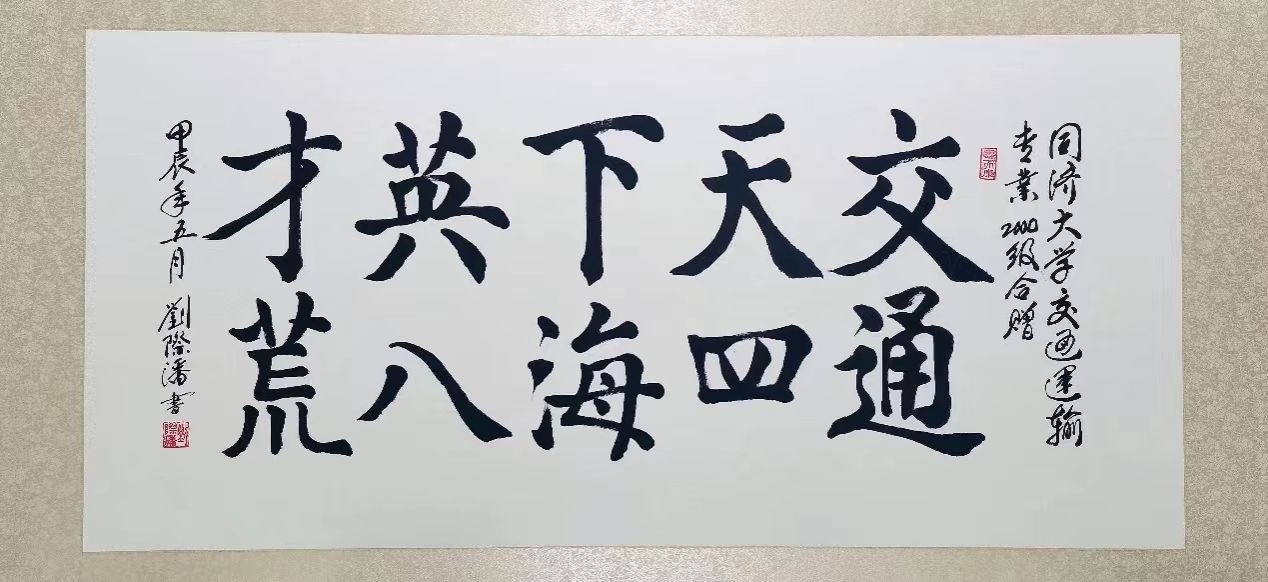 同济大学交通运输
专業2000级合赠
交通
天四
下海
英八
才荒
甲辰年五月 劉際潘書